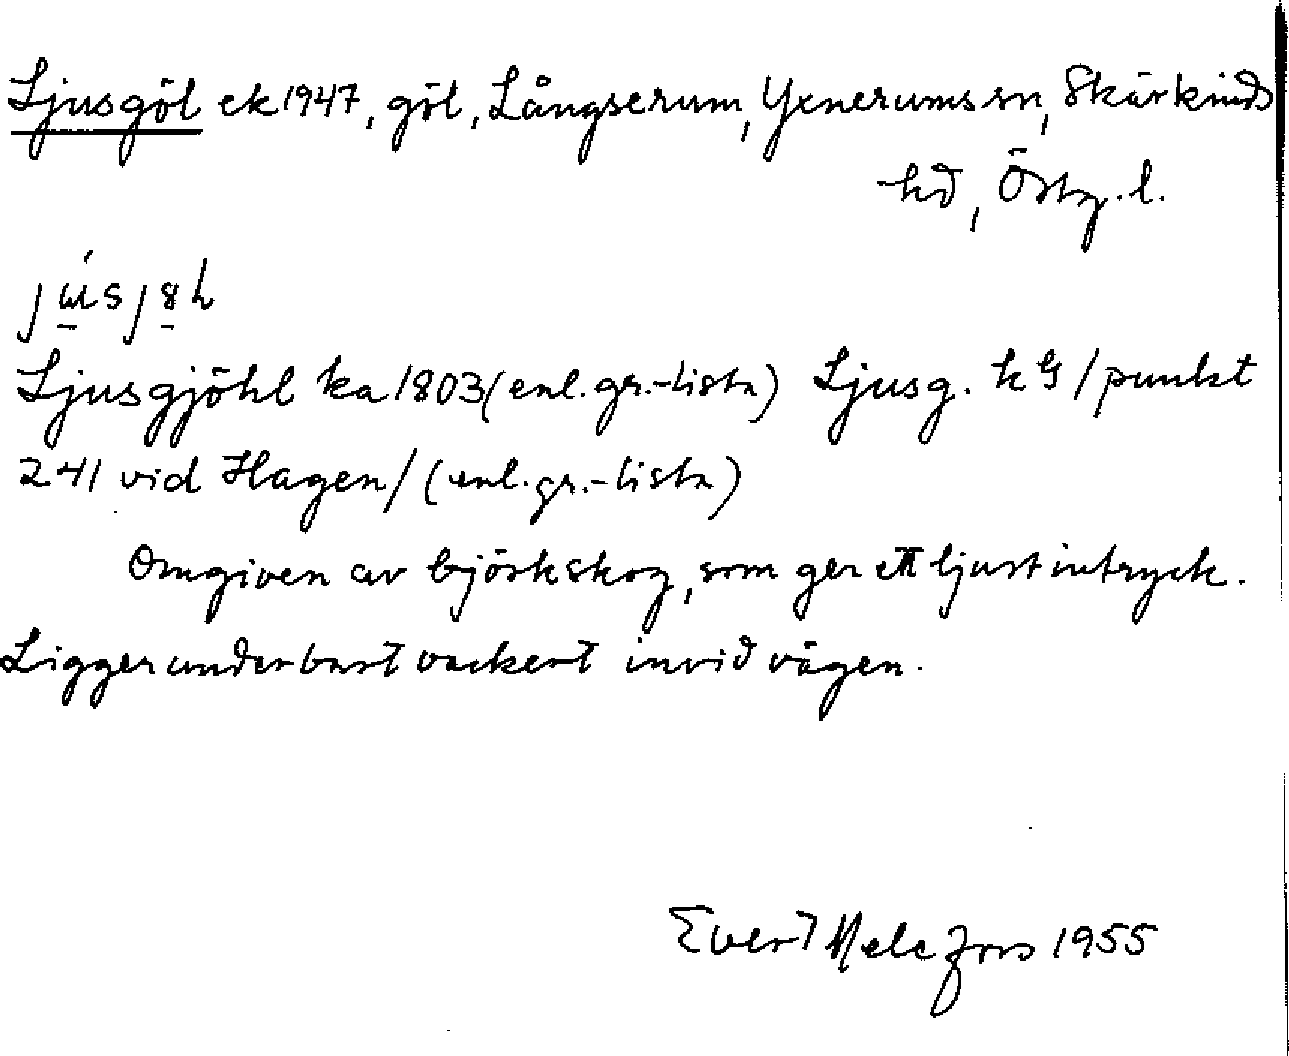 Ljusgöl ek 1947, göl, Långserum, Yxnerums sn, Skärkinds
hd, Östg. l.
Ljusgjöhl ka 1803 (enl. gr.-lista) Ljusg. k G /punkt
241 vid Hagen/ (enl. gr.-lista)
Omgiven av björkskog, som ger ett ljust intryck.
Ligger underbart vackert invid vägen.
Evert Melefors 1955